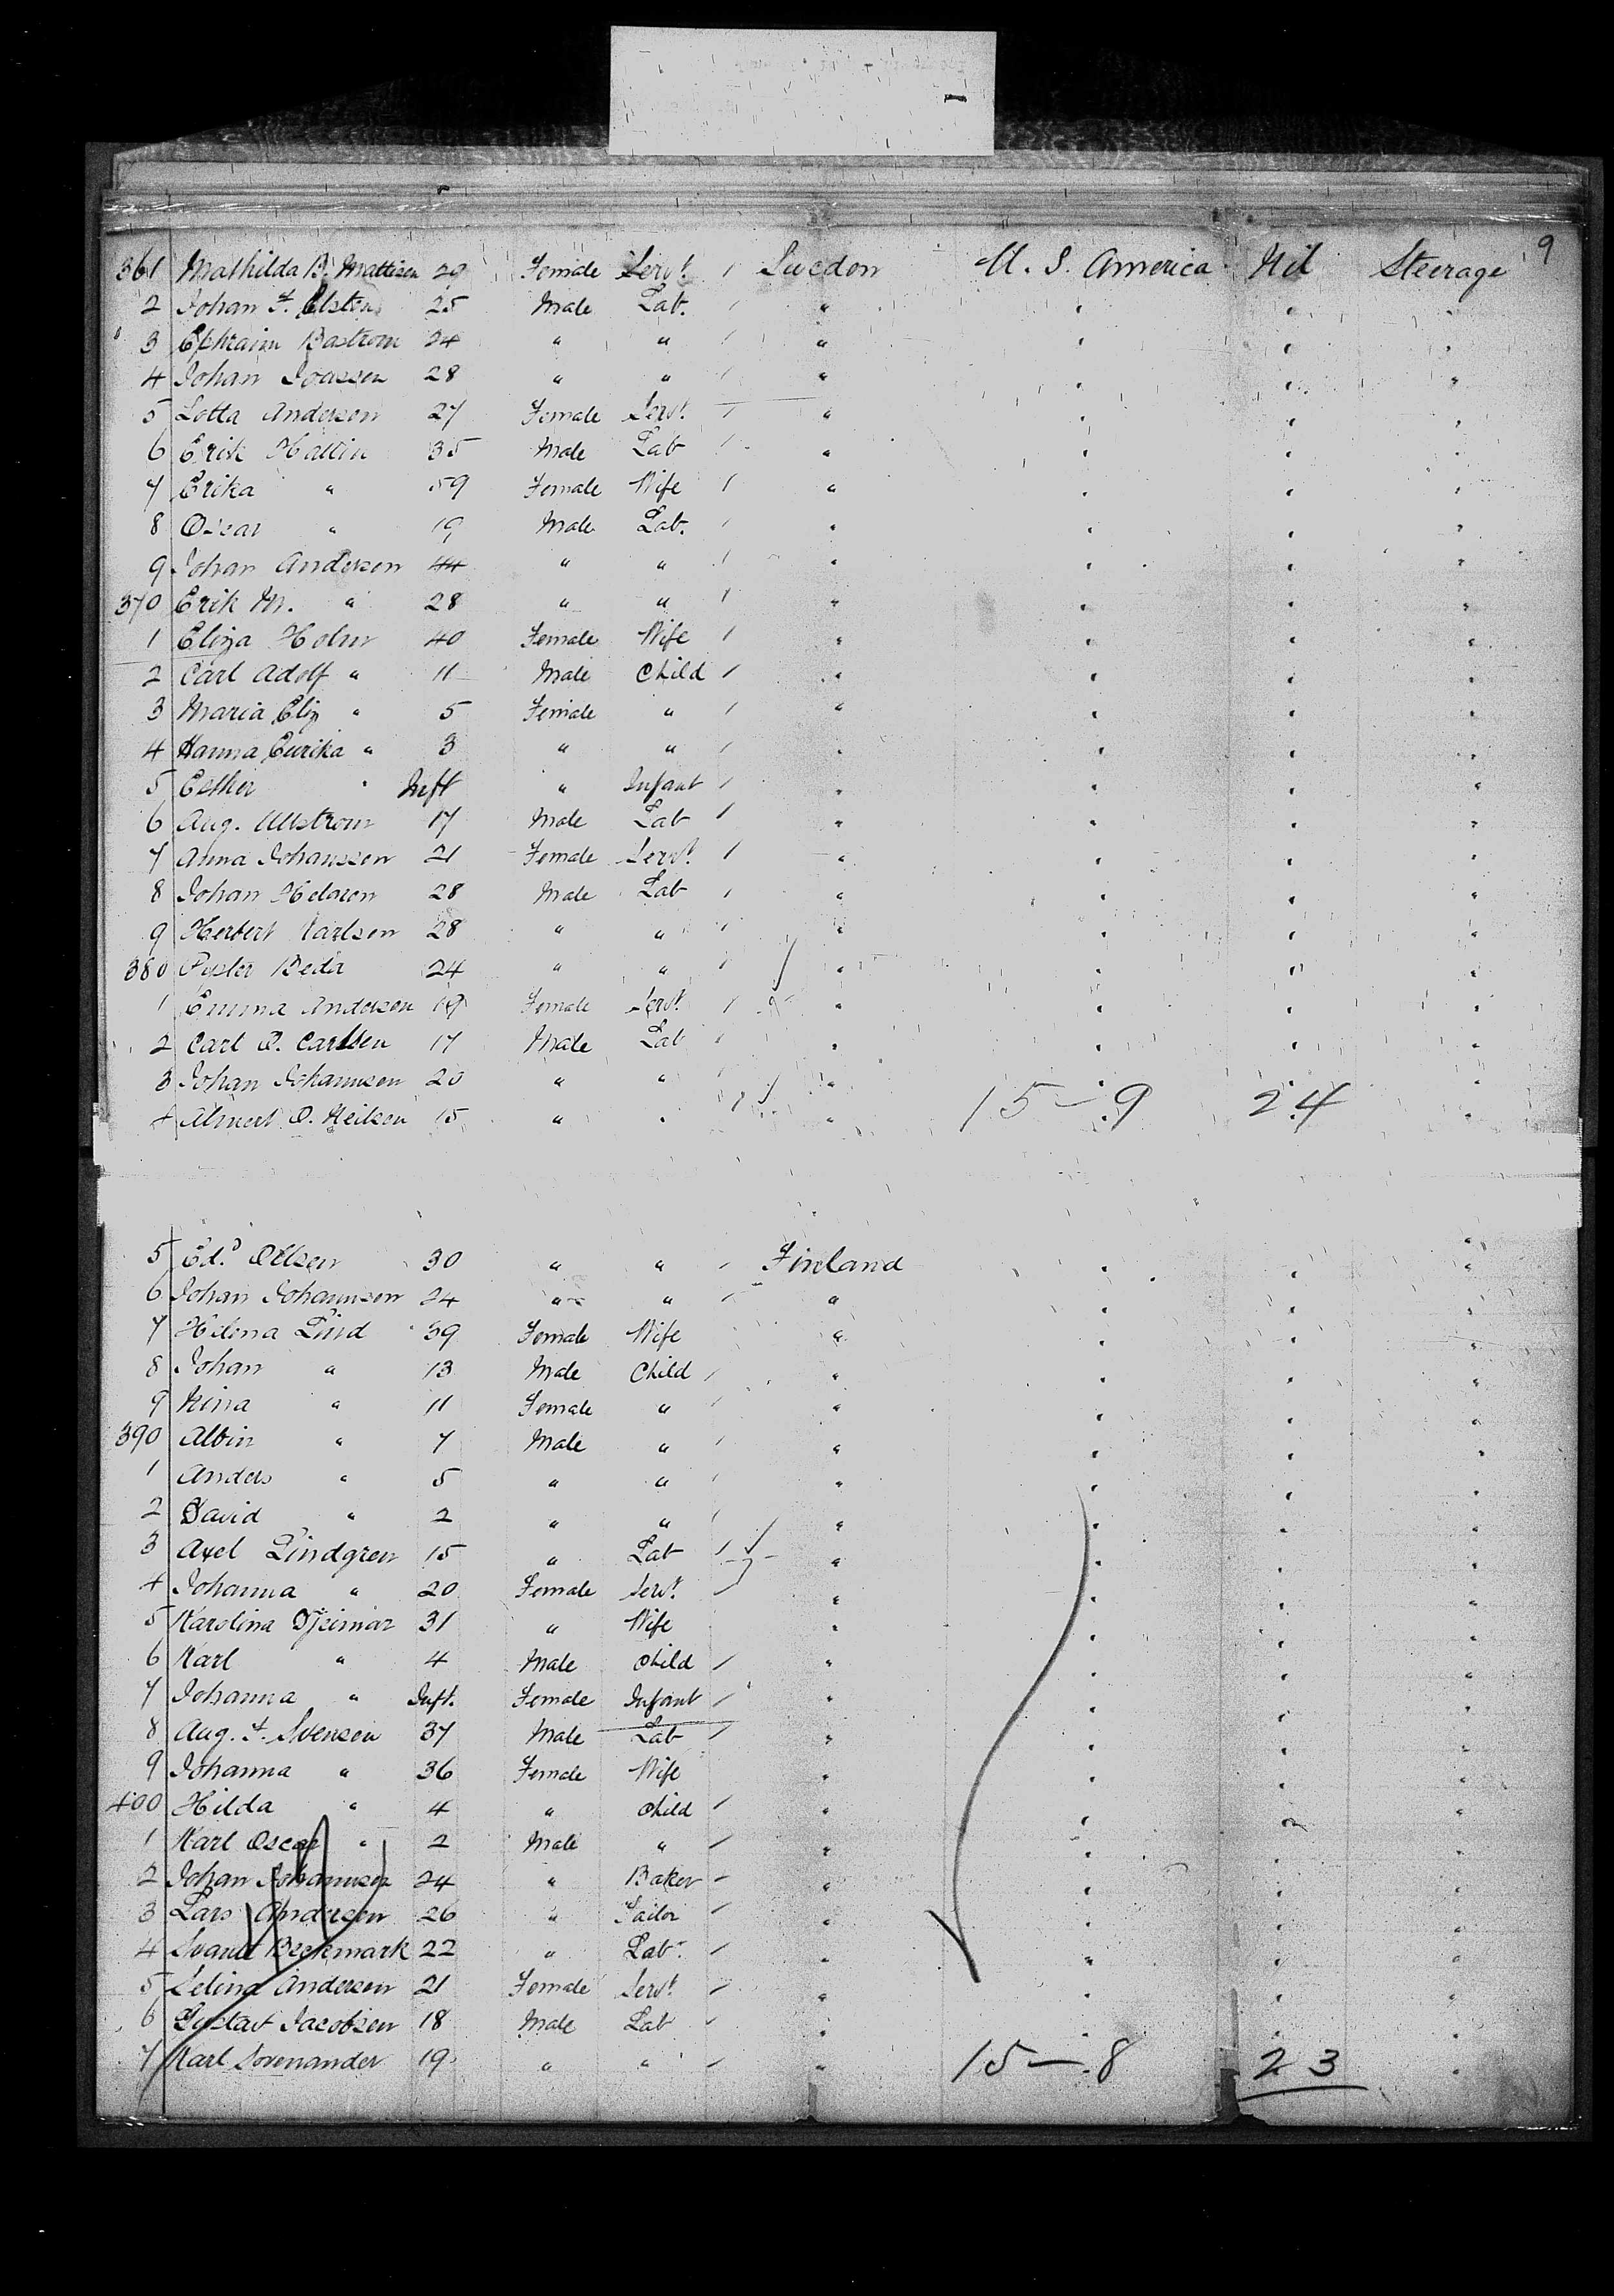 9
361 Mathilda B. Mattisen 29 Female Servt. / Sweden U. S. America Nil Steerage
2 Johan F. Elston 25 Male Lab. / " " " "
3 Ephraim Bastrom 24 " " / " " " "
4 Johan Joassen 28 " " / " " " "
5 Lotta Andersen 27 Female Servt. / " " " "
6 Erik Hallin 35 Male Lab / " " " "
7 Erika " 59 Female Wife / " " " "
8 Oscar " 19 Male Lab. / " " " "
9 Johan Andersen 44 " " / " " " "
370 Erik M. " 28 " " / " " " "
1 Eliza Holm 40 Female Wife / " " " "
2 Carl Adolf " 11 Male Child / " " " "
3 Maria Eliz " 5 Female " / " " " "
4 Hanna Eurika " 3 " " / " " " "
5 Esther " Inft " Infant / " " " "
6 Aug. Ullstrom 17 Male Lab / " " " "
7 Anna Johanssen 21 Female Servt. / " " " "
8 Johan 28 Male Lab / " " " "
9 Herbert Karlsen 28 " " / " " " "
380 Beda 24 " " / " " " "
1 Emma Andersen 19 Female Servt. / " " " "
2 Carl O. Carlsen 17 Male Lab / " " " "
3 Johan Johannsen 20 " " / " " " "
4 O. Neilsen 15 " " / " 15 - 9 24 "
5 Edd. Ollsen 30 " " / Finland " " "
6 Johan Johannsen 24 " " / " " " "
7 Helena Lind 39 Female Wife " " " "
8 Johan " 13 Male Child / " " " "
9 Nina " 11 Female " / " " " "
390 Albin " 7 Male " / " " " "
1 Anders " 5 " " / " " " "
2 David " 2 " " / " " " "
3 Axel Lindgren 15 " Lab / " " " "
4 Johanna " 20 Female Servt. / " " " "
5 Karolina 31 " Wife " " " "
6 Karl " 4 Male Child / " " " "
7 Johanna " Inft. Female Infant / " " " "
8 Aug. F. Svensen 37 Male Lab / " " " "
9 Johanna " 36 Female Wife " " " "
400 Hilda " 4 " Child / " " " "
1 Karl Oscar " 2 Male " / " " " "
2 Johan Johannsen 24 " Baker / " " " "
3 Lars Andersen 26 " Tailor / " " " "
4 Beckmark 22 " Lab. / " " " "
5 Selina Andersen 21 Female Servt. / " " " "
6 Gustav Jacobsen 18 Male Lab / " " " "
7 Karl Sorenander 19 " " / " 15 - 8 23 "